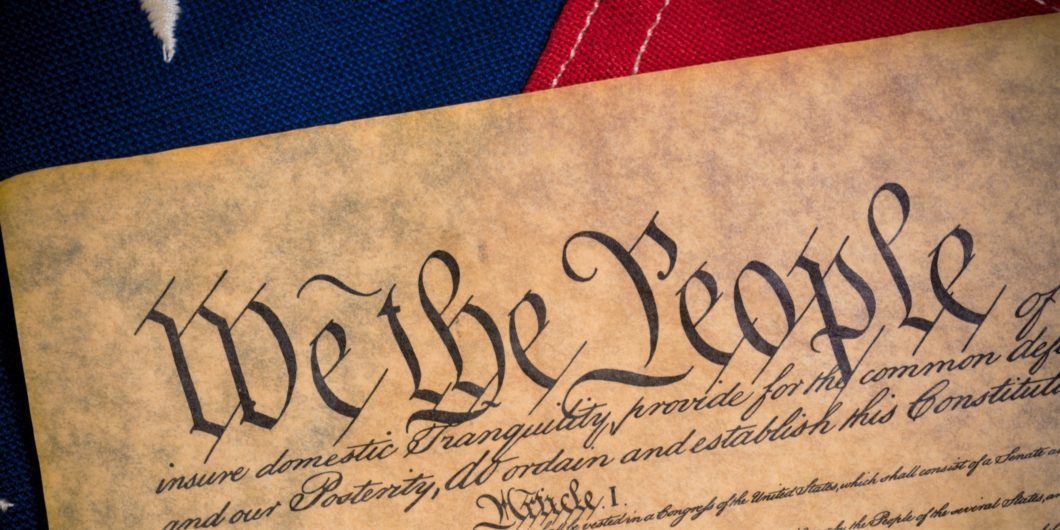 We the People of
insure domestic Tranquility, provide for the common defe
and our Posterity, do ordain and establish this Constitut
Article. I
vested in a Congress of the United States, which shall consist of a Senate a
by the People of the several States, an